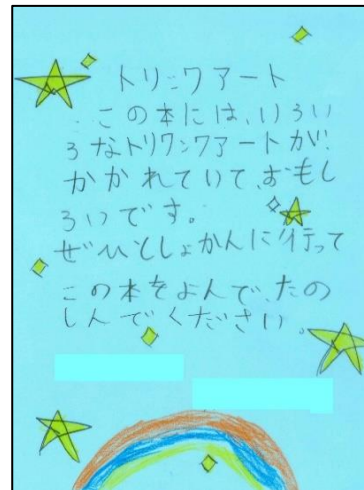 トリックアート
この本には、いろい
ろなトリックアートが
かかれていて、おもし
ろいです。
ぜひとしょかんに行って
この本をよんで、たの
しんでください。